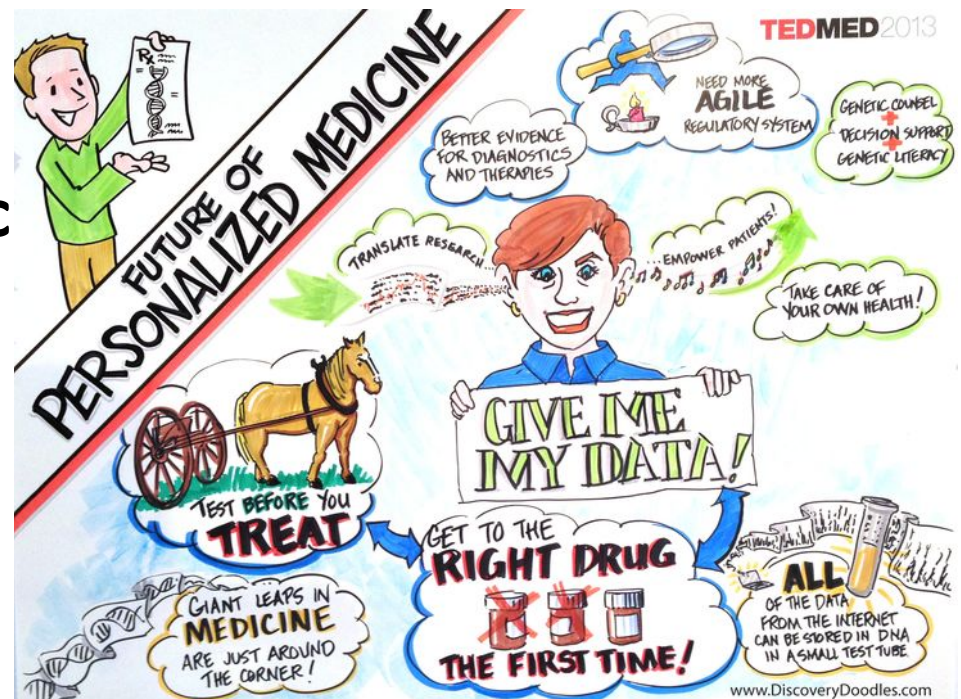 TEDMED2013
Rx
FUTURE OF
PERSONALIZED MEDICINE
c
NEED MORE
AGILE
REGULATORY SYSTEM
GENETIC COUNSEL
+
DECISION SUPPORT
+
GENETIC LITERACY
BETTER EVIDENCE
FOR DIAGNOSTICS
AND THERAPIES
TRANSLATE RESEARCH
EMPOWER PATIENTS!
TAKE CARE OF
YOUR OWN HEALTH!
GIVE ME
MY DATA!
TEST BEFORE YOU
TREAT
GET TO THE
RIGHT DRUG
THE FIRST TIME!
GIANT LEAPS IN
MEDICINE
ARE JUST AROUND
THE CORNER!
ALL
OF THE DATA
FROM THE INTERNET
CAN BE STORED IN DNA
IN A SMALL TEST TUBE
www.DiscoveryDoodles.com